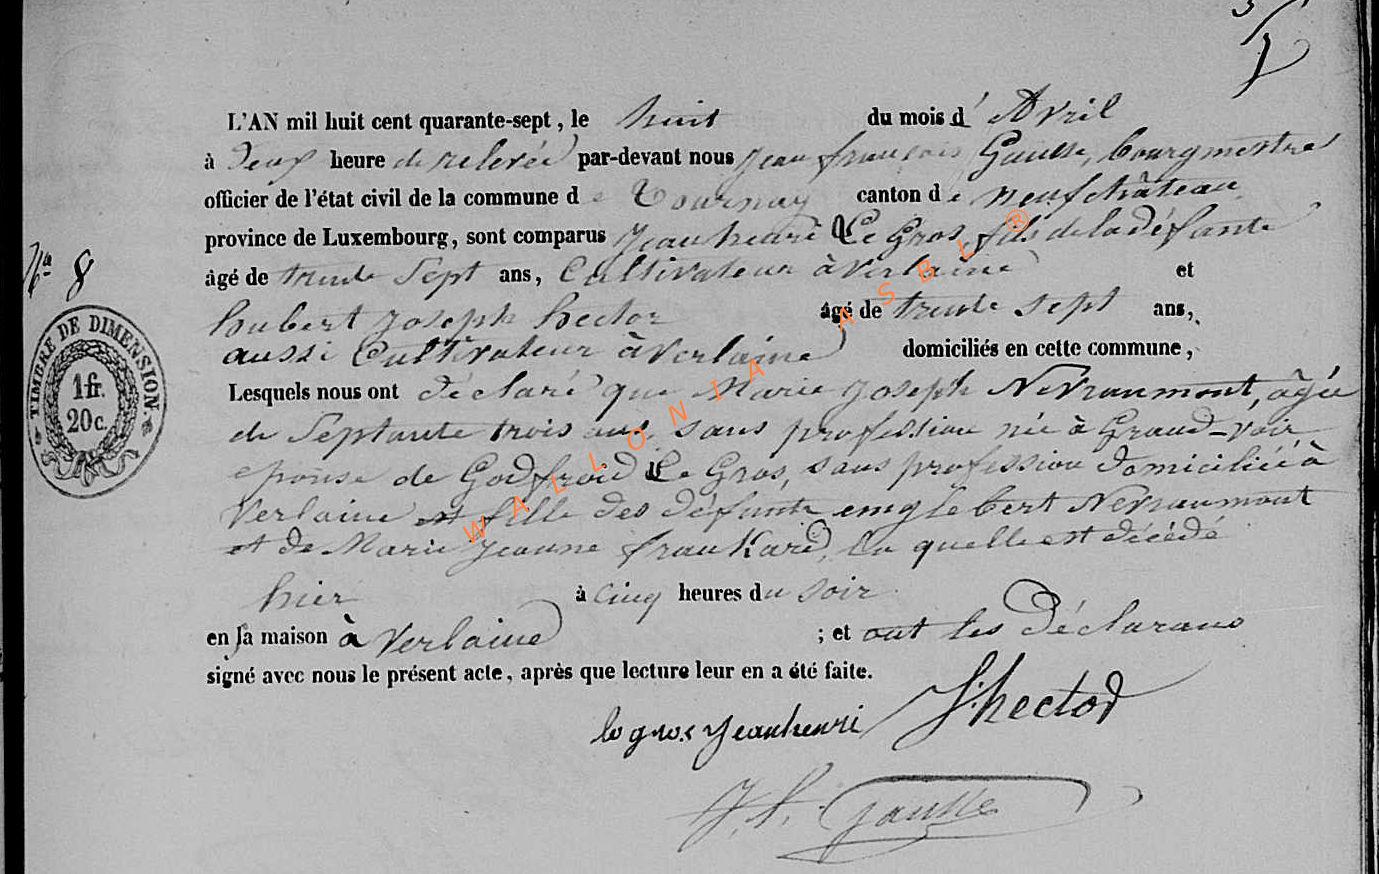 L'AN mil huit cent quarante-sept, le huit du mois d' Avril
à Deux heure de relevée par-devant nous Jean françois Gausse, bourgmestre
officier de l'état civil de la commune de Tournay canton de neufchâteau
province de Luxembourg, sont comparus Jean henri Le Gros, fils de la défunte
Nº 8
âgé de trente Sept ans, Cultivateur à Verlaine et
hubert Joseph hector âgé de trente sept ans,
aussi Cultivateur à Verlaine domiciliés en cette commune,
TIMBRE DE DIMENSION.
1 fr.
20 c.
Lesquels nous ont déclaré que Marie Joseph Nevraumont, âgée
de Septante trois ans, sans profession née à Grand-voir
epouse de Godfroid Le Gros, sans profession domiciliée à
Verlaine et fille des défunts englebert Nevraumont
et de Marie Jeanne frankard, la quelle est décédé
hier à cinq heures du soir
en sa maison à Verlaine ; et ont les déclarans
signé avec nous le présent acte, après que lecture leur en a été faite.
le gros Jean henri hector
J. f. Gausse
WALLONIA ASBL ®